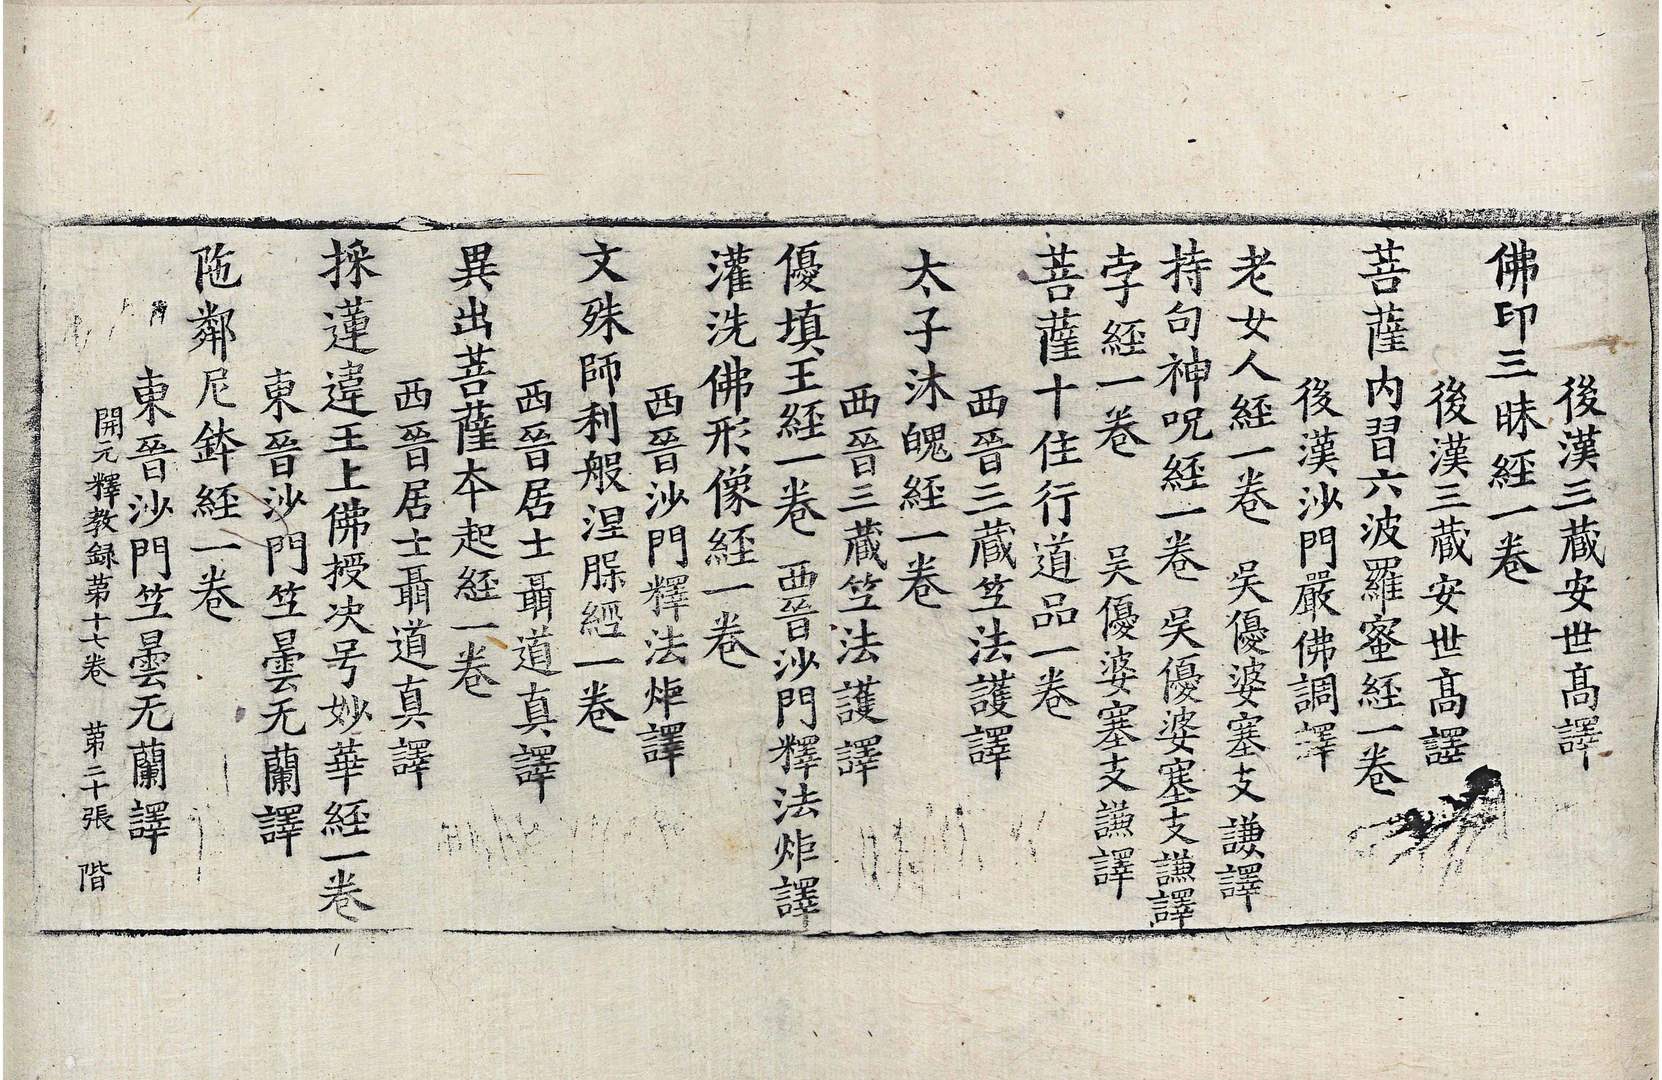 後漢三蔵安世髙譯
佛印三昧経一卷
後漢三蔵安世髙譯
菩薩内習六波羅蜜経一卷
後漢沙門嚴佛調譯
老女人経一卷 吴優婆塞支謙譯
持句神呪経一卷 吴優婆塞支謙譯
孛経一卷 吴優婆塞支謙譯
菩薩十住行道品一卷
西晉三蔵笁法護譯
太子沐魄経一卷
西晉三蔵笁法護譯
優填王経一卷 西晉沙門釋法炬譯
灌洗佛形像経一卷
西晉沙門釋法炬譯
文殊師利般涅脲經一卷
西晉居士聶道真譯
異出菩薩本起経一卷
西晉居士聶道真譯
採蓮違王上佛授决号妙華経一卷
東晉沙門笁曇无蘭譯
陁鄰尼鉢経一卷
東晉沙門笁曇无蘭譯
開元釋教録苐十七卷 苐二十張 階